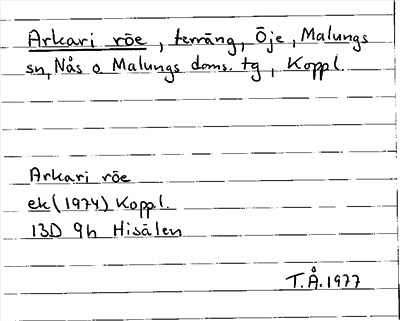 Arkari röe, terräng, Öje, Malungs
sn, Nås o. Malungs doms. tg, Koppl.
Arkari röe
ek (1974) Koppl.
13D 9h Hisälen
T.Å. 1977